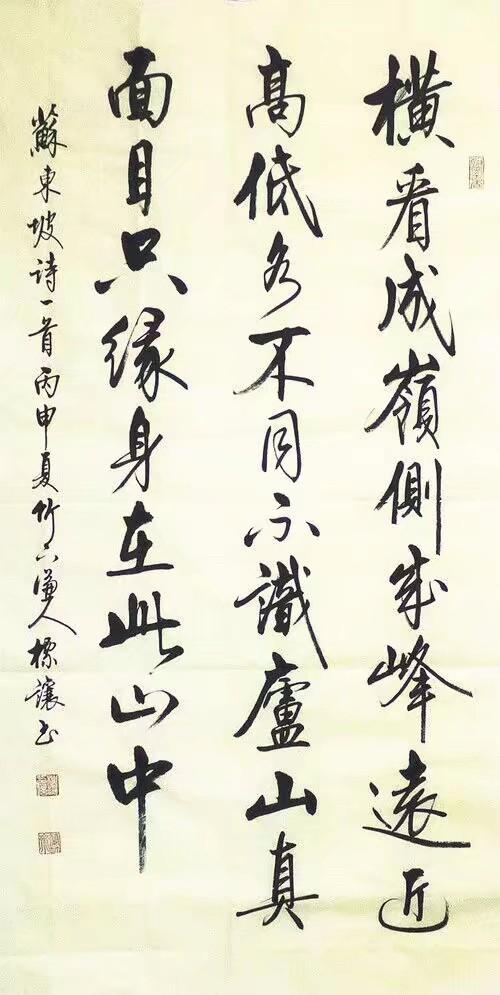 橫看成嶺側成峰遠近
高低各不同不識廬山真
面目只緣身在此山中
蘇東坡诗一首丙申夏竹下谦人標讓书